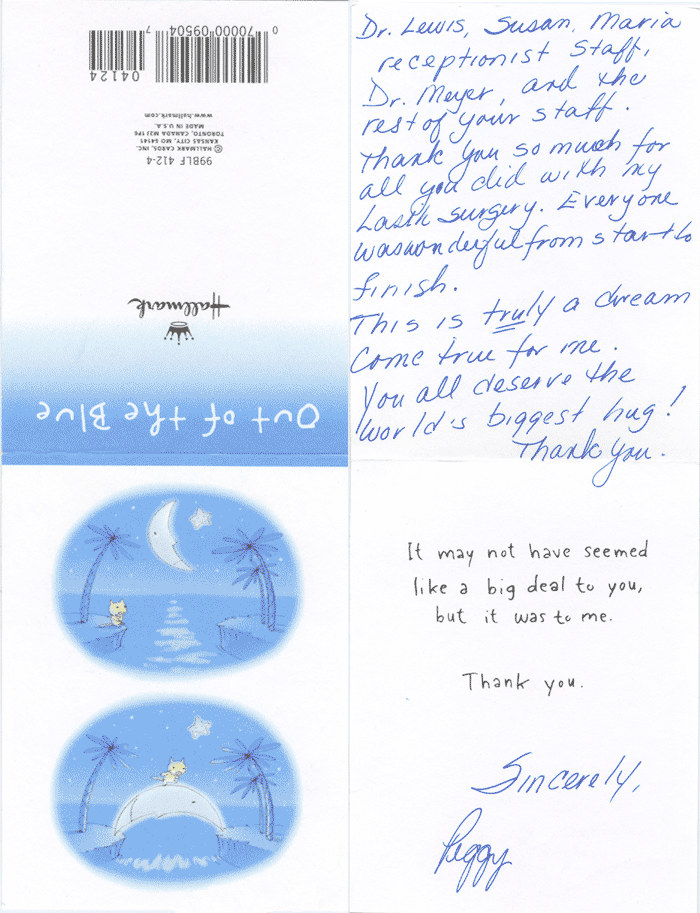 Dr. Lewis, Susan, Maria
receptionist staff,
Dr. Meyer, and the
rest of your staff.
Thank you so much for
all you did with my
Lasik surgery. Everyone
was wonderful from start to
finish.
This is truly a dream
come true for me.
You all deserve the
world's biggest hug!
Thank you.
It may not have seemed
like a big deal to you,
but it was to me.
Thank you.
Sincerely,
Peggy
Out of the Blue
Hallmark
99BLF 412-4
© HALLMARK CARDS, INC.
KANSAS CITY, MO 64141
TORONTO, CANADA M2J 1P6
MADE IN U.S.A.
www.hallmark.com
0 70000 09504 7
04124